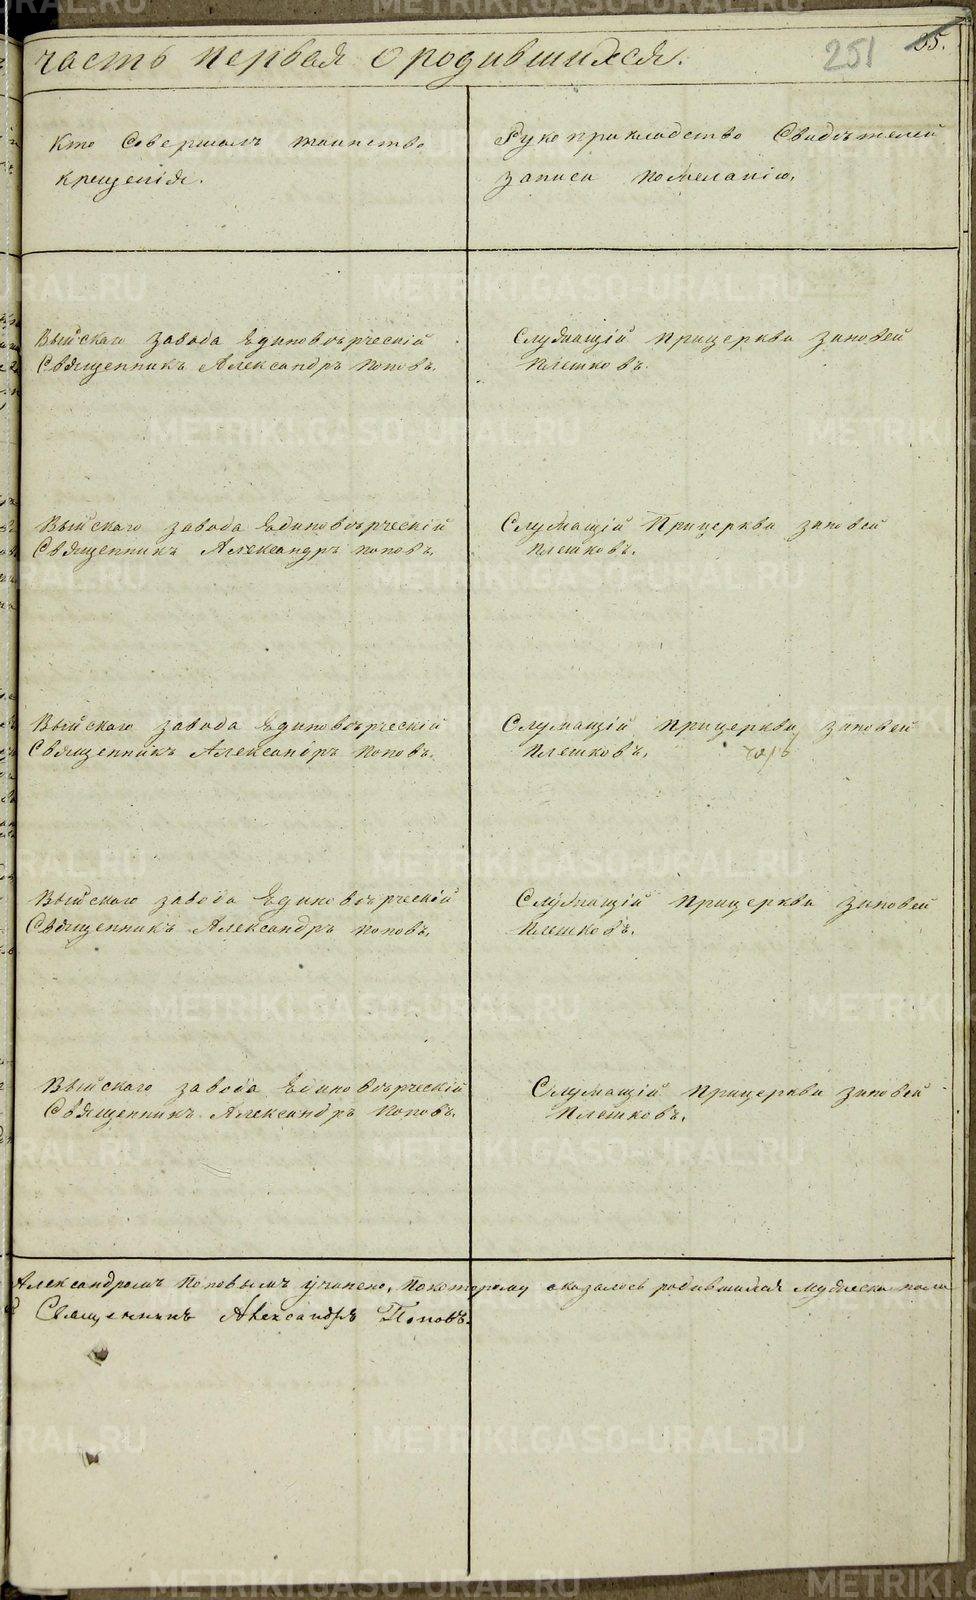 часть первая о родившихся.
251
55.
Кто Совершалъ таинство
крещенія.
Рукоприкладство Свидѣтелей
записи по желанію.
Выйскаго завода Единовѣрческій
Священникъ Александръ Поповъ.
Служащій прицерква Зиновей
Плешковъ.
Выйскаго завода Единовѣрческій
Священникъ Александръ Поповъ.
Служащій Прицерква Зиновей
Плешковъ.
Выйскаго завода Единовѣрческій
Священникъ Александръ Поповъ.
Служащій прицерква Зиновей
Плешковъ.
Выйскаго завода Единовѣрческій
Священникъ Александръ Поповъ.
Служащій прицерква Зиновей
Плешковъ.
Выйскаго завода Единовѣрческій
Священникъ Александръ Поповъ.
Служащій прицерква Зиновей
Плешковъ.
Александромъ Поповымъ учинено, покоторому оказалось родившихся мужеска пола
Священникъ Александръ Поповъ.
METRIKI.GASO-URAL.RU